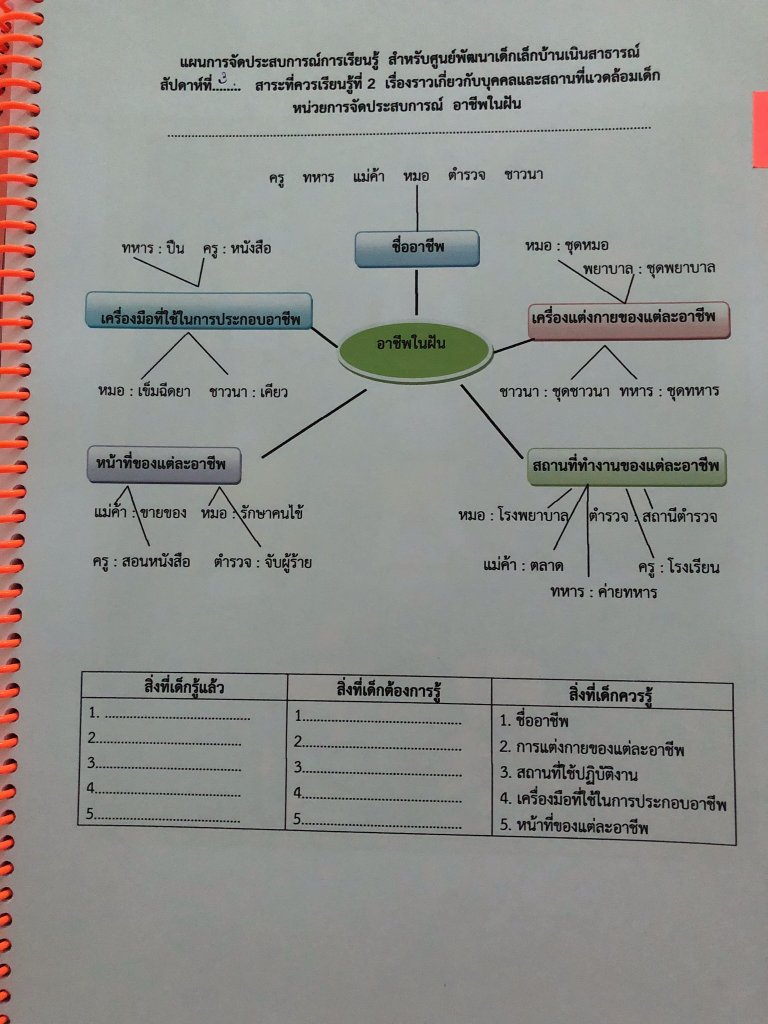 แผนการจัดประสบการณ์การเรียนรู้ สำหรับศูนย์พัฒนาเด็กเล็กบ้านเนินสาธารณ์
สัปดาห์ที่...3..... สาระที่ควรเรียนรู้ที่ 2 เรื่องราวเกี่ยวกับบุคคลและสถานที่แวดล้อมเด็ก
หน่วยการจัดประสบการณ์ อาชีพในฝัน
ครู ทหาร แม่ค้า หมอ ตำรวจ ชาวนา
ชื่ออาชีพ
ทหาร : ปืน ครู : หนังสือ
หมอ : ชุดหมอ
พยาบาล : ชุดพยาบาล
เครื่องมือที่ใช้ในการประกอบอาชีพ
เครื่องแต่งกายของแต่ละอาชีพ
อาชีพในฝัน
หมอ : เข็มฉีดยา ชาวนา : เคียว
ชาวนา : ชุดชาวนา ทหาร : ชุดทหาร
หน้าที่ของแต่ละอาชีพ
สถานที่ทำงานของแต่ละอาชีพ
แม่ค้า : ขายของ หมอ : รักษาคนไข้
หมอ : โรงพยาบาล ตำรวจ : สถานีตำรวจ
ครู : สอนหนังสือ ตำรวจ : จับผู้ร้าย
แม่ค้า : ตลาด ครู : โรงเรียน
ทหาร : ค่ายทหาร
สิ่งที่เด็กรู้แล้ว สิ่งที่เด็กต้องการรู้ สิ่งที่เด็กควรรู้
1. .................................. 1..................................... 1. ชื่ออาชีพ
2.................................. 2..................................... 2. การแต่งกายของแต่ละอาชีพ
3.................................. 3..................................... 3. สถานที่ใช้ปฏิบัติงาน
4.................................. 4..................................... 4. เครื่องมือที่ใช้ในการประกอบอาชีพ
5.................................. 5..................................... 5. หน้าที่ของแต่ละอาชีพ